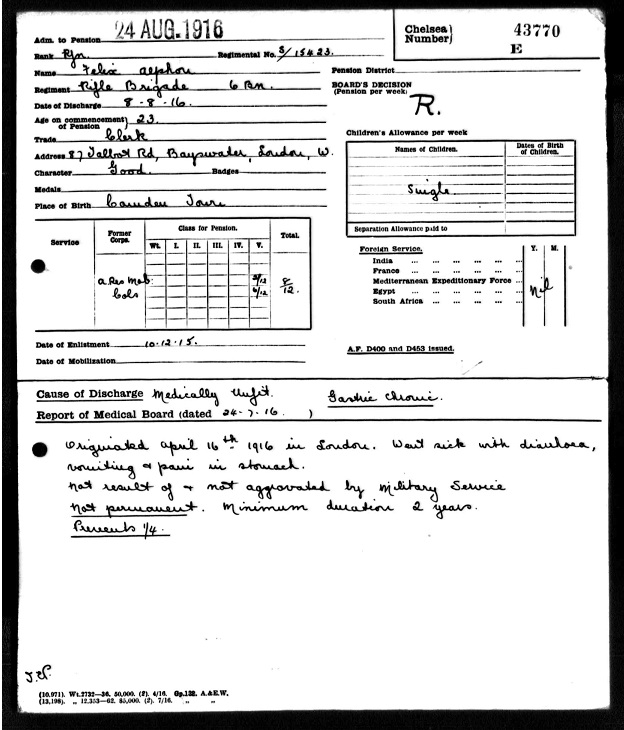 Adm. to Pension 24 AUG. 1916
Chelsea Number} 43770
E
Rank Rfn. Regimental No. S/15423.
Name Felix Alphon
Regiment Rifle Brigade 6 Bn.
Date of Discharge 8-8-16.
Age on commencement of Pension} 23.
Trade Clerk
Address 87 Talbot Rd, Bayswater, London, W.
Character Good. Badges
Medals
Place of Birth Camden Town
Pension District
BOARD'S DECISION (Pension per week) R.
Children's Allowance per week
Names of Children. Dates of Birth of Children.
Single
Separation Allowance paid to
Service Former Corps. Class for Pension. Total.
Wt. I. II. III. IV. V.
a. Res Mob. 2/12 8/12
Cols 6/12
Foreign Service. Y. M.
India ... ... ... ... ...
France ... ... ... ... ...
Mediterranean Expeditionary Force ...
Egypt ... ... ... ... ...
South Africa ... ... ... ...
Nil
Date of Enlistment 10.12.15.
Date of Mobilization
A.F. D400 and D453 issued.
Cause of Discharge Medically Unfit. Gastric Chronic.
Report of Medical Board (dated 24-7-16. )
Originated April 16th 1916 in London. Went sick with diarrhoea,
vomiting & pain in stomach.
Not result of & not aggravated by Military Service
Not permanent. Minimum duration 2 years.
Prevents 1/4.
(10,971). Wt.2732—36. 50,000. (2). 4/16. Gp.132. A.&E.W.
(13,198). „ 12,353—62. 85,000. (2). 7/16. „ „